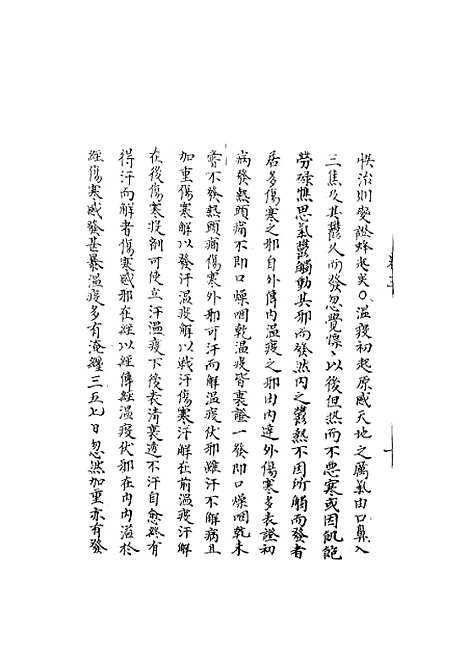 悞治則變證蜂起矣○溫疫初起原感天地之厲氣由口鼻入
三焦及其鬱久而發忽覺憬〻以後但熱而不惡寒或因飢飽
勞碌憔思氣鬱觸動其邪而發然內之鬱熱不因所觸而發者
居多傷寒之邪自外傳內溫疫之邪由內達外傷寒多表證初
病發熱頭痛不即口燥咽乾溫疫皆裏證一發即口燥咽乾未
嘗不發熱頭痛傷寒外邪可汗而解溫疫伏邪雖汗不解病且
加重傷寒解以發汗溫疫解以戰汗傷寒汗解在前溫疫汗解
在後傷寒投劑可使立汗溫疫下後表清裏透不汗自愈終有
得汗而解者傷寒感邪在經以經傳經溫疫伏邪在內內溢於
經傷寒感發甚暴溫疫多有淹纏三五七日忽然加重亦有發